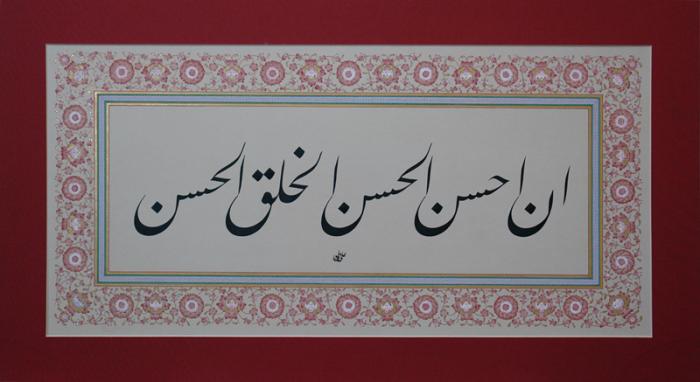 ان احسن الحسن الخلق الحسن